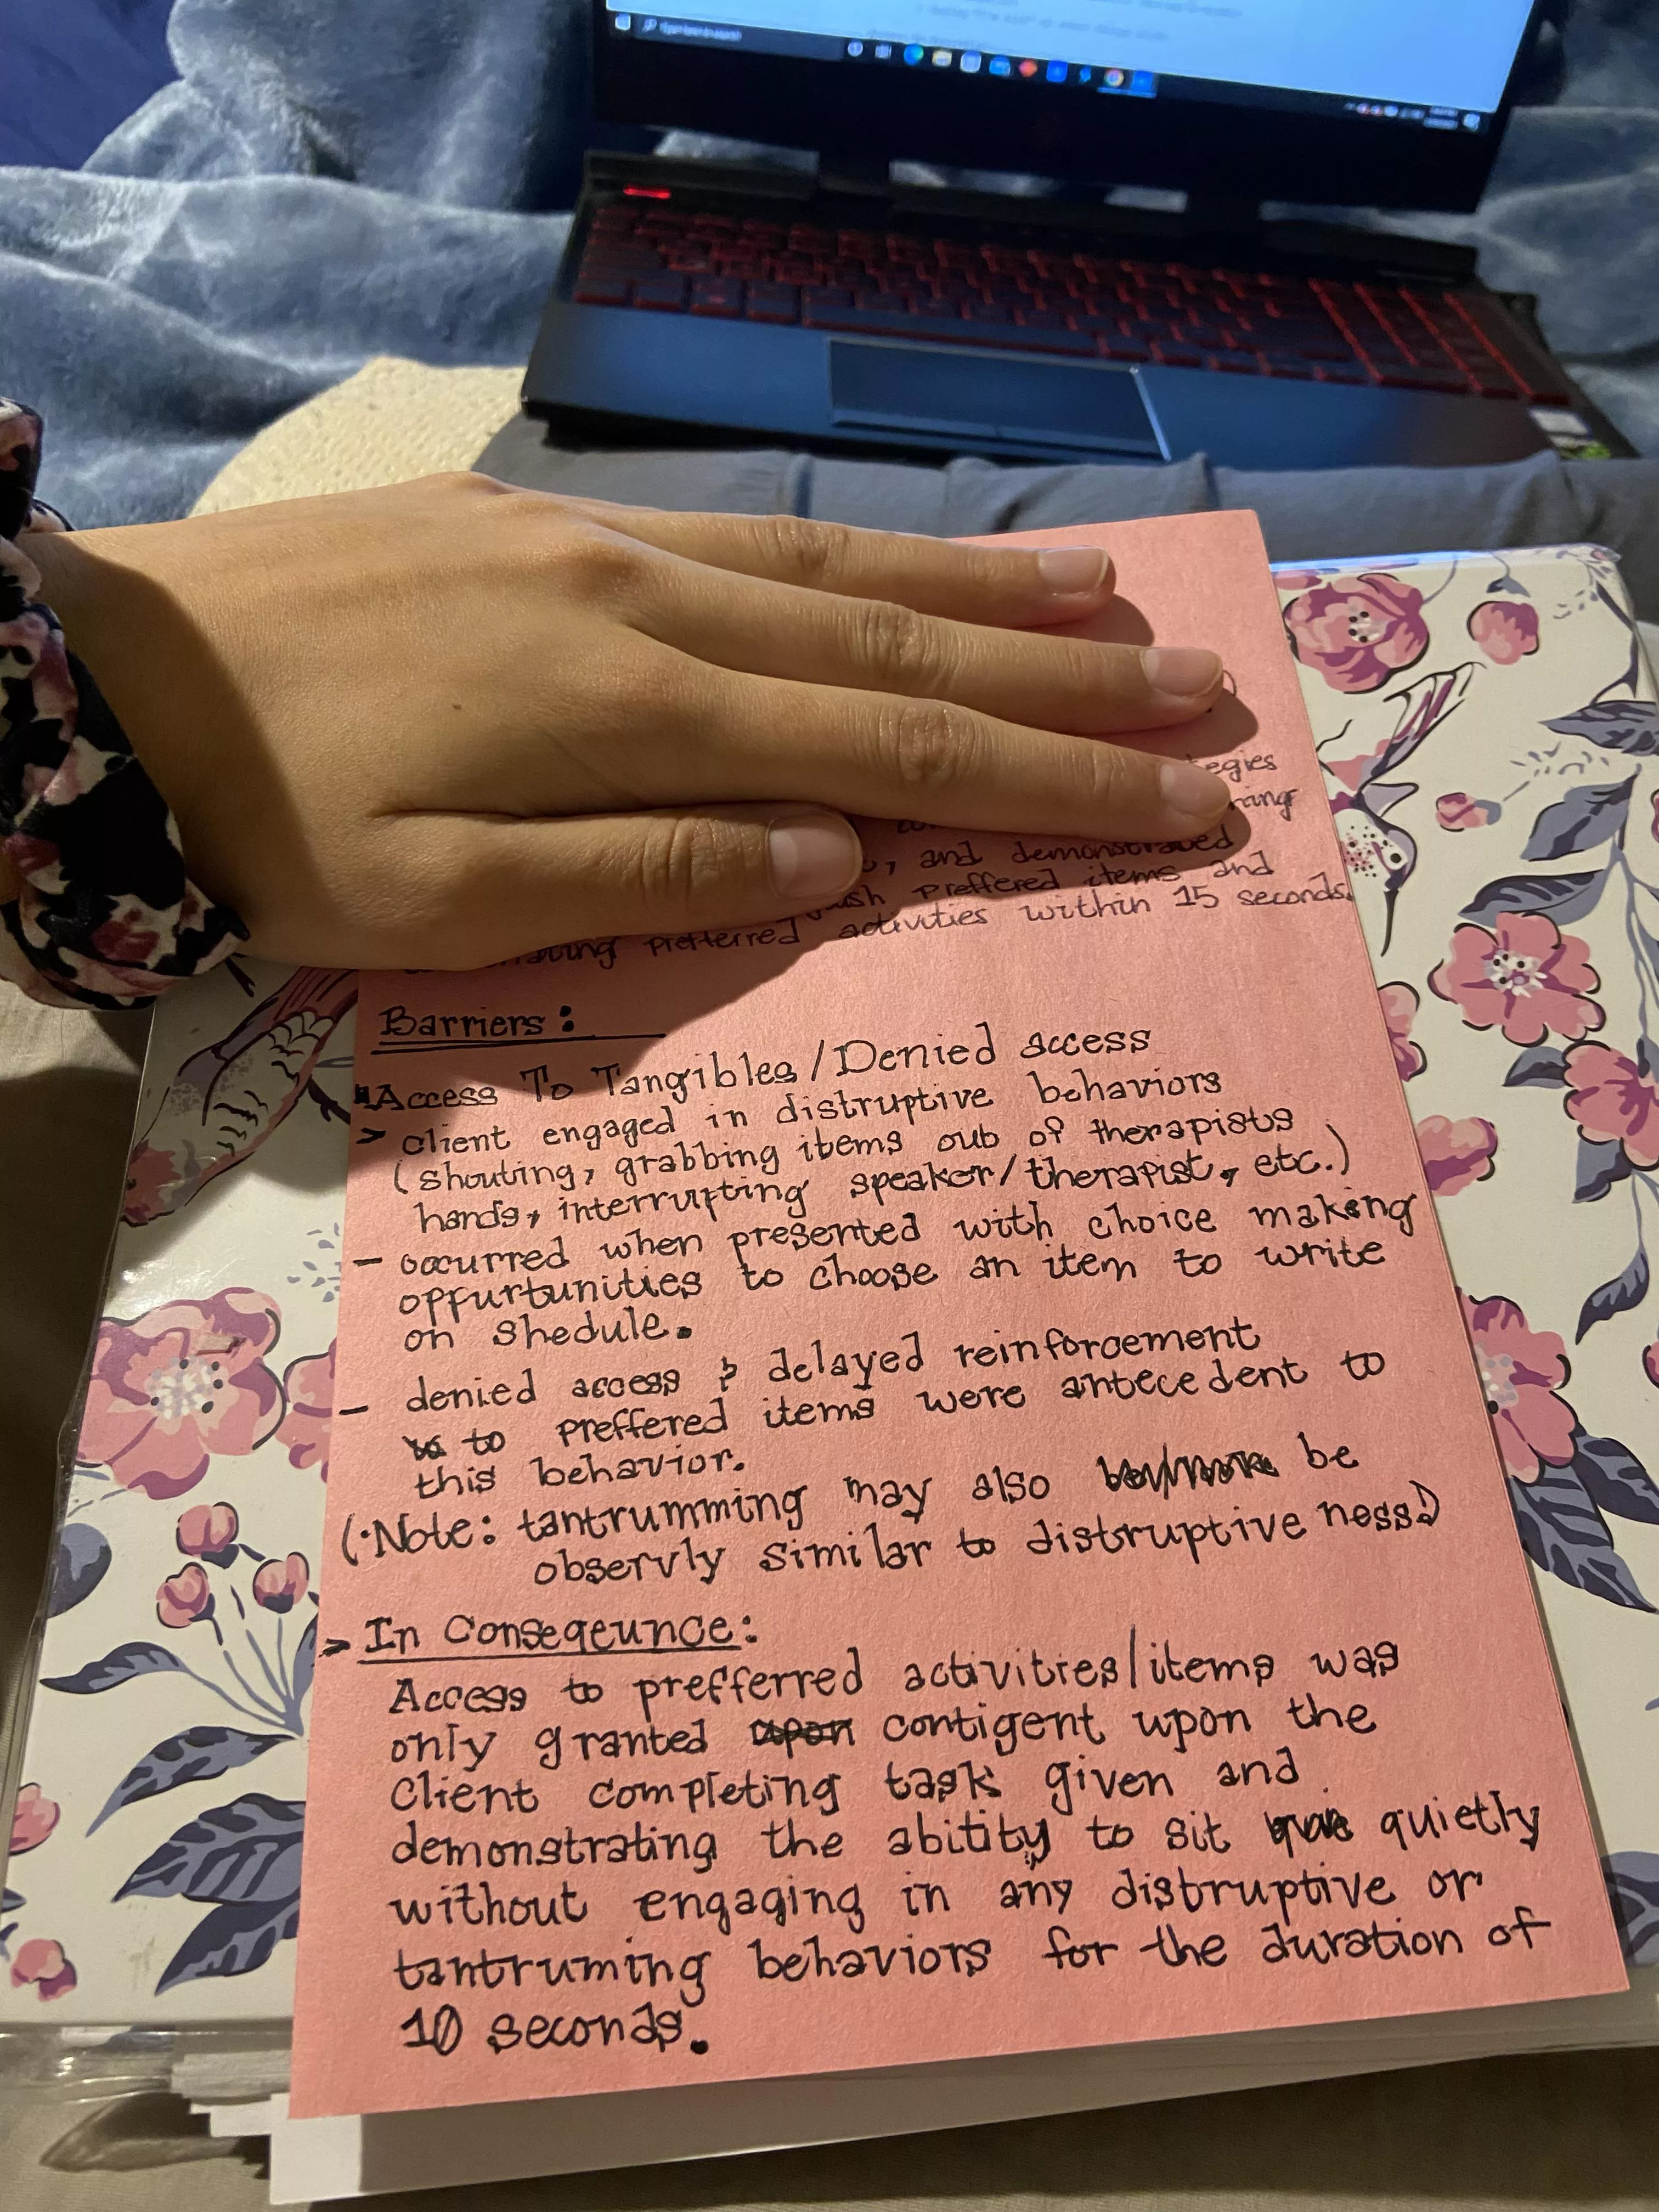 Type here to search
and demonstrated
preffered items and
preferred activities within 15 seconds.
Barriers:
Access To Tangibles/Denied access
> client engaged in distruptive behaviors
(shouting, grabbing items oub of therapists
hands, interrupting speaker/therapist, etc.)
- occurred when presented with choice making
oppurtunities to choose an item to write
on shedule.
- denied access & delayed reinforcement
to preffered items were antecedent to
this behavior.
(·Note: tantrumming may also be
observly similar to distruptive ness!)
> In Conseqeunce:
Access to prefferred activities/items was
only granted upon contigent upon the
Client completing task given and
demonstrating the abitity to sit quietly
without engaging in any distruptive or
tantruming behaviors for the duration of
10 seconds.